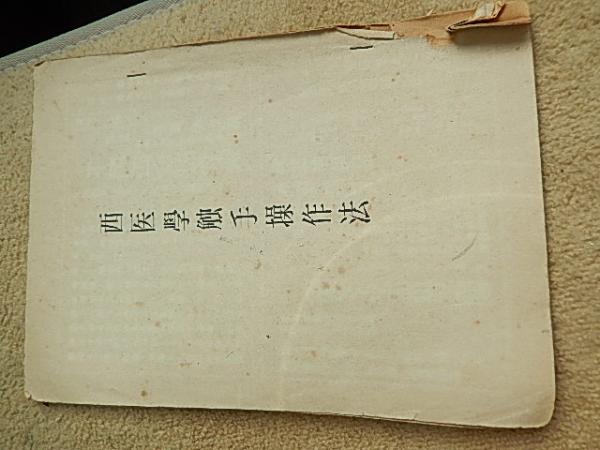 西医學触手操作法